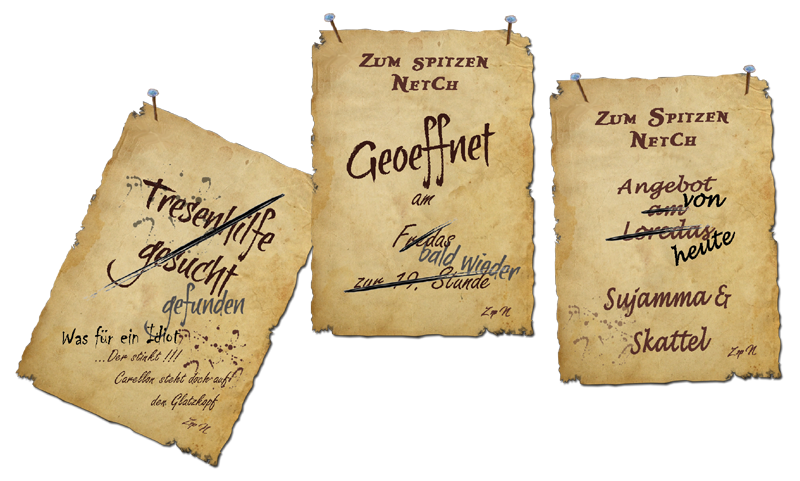 Tresenhilfe
gesucht
gefunden
Was für ein Idiot
...Der stinkt !!!
Carellon steht doch auf
den Glatzkopf
Zsp N
Zum Spitzen
Netch
Geoeffnet
am
Fredas
bald wieder
zur 19. Stunde
Zsp N
Zum Spitzen
Netch
Angebot
am von
Loredas
heute
Sujamma &
Skattel
Zsp N